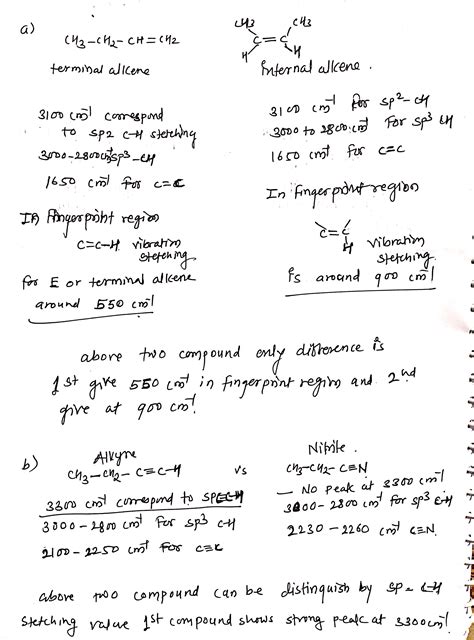 a)
CH3-CH2-CH=CH2
terminal alkene
3100 cm-1 correspond
to sp2 C-H stetching
3000-2800cm-1 sp3-CH
1650 cm-1 for C=C
In fingerprint region
C=C-H vibration
stetching
for E or terminal alkene
around 550 cm-1
CH3 CH3
C=C
H H
Internal alkene.
3100 cm-1 for sp2-CH
3000 to 2800 cm-1 for sp3 CH
1650 cm-1 for C=C
In fingerprint region
C=C
H vibration
stetching
is around 900 cm-1
above two compound only difference is
1st give 550 cm-1 in fingerprint region and 2nd
give at 900 cm-1.
b)
Alkyne
CH3-CH2-C≡C-H
3300 cm-1 correspond to sp C-H
3000-2800 cm-1 for sp3 C-H
2100-2250 cm-1 for C≡C
vs
Nitrile.
CH3-CH2-C≡N
- No peak at 3300 cm-1
3000-2800 cm-1 for sp3 C-H
2230-2260 cm-1 C≡N.
above two compound can be distinguish by sp-C-H
stetching value 1st compound shows strong peak at 3300cm-1.